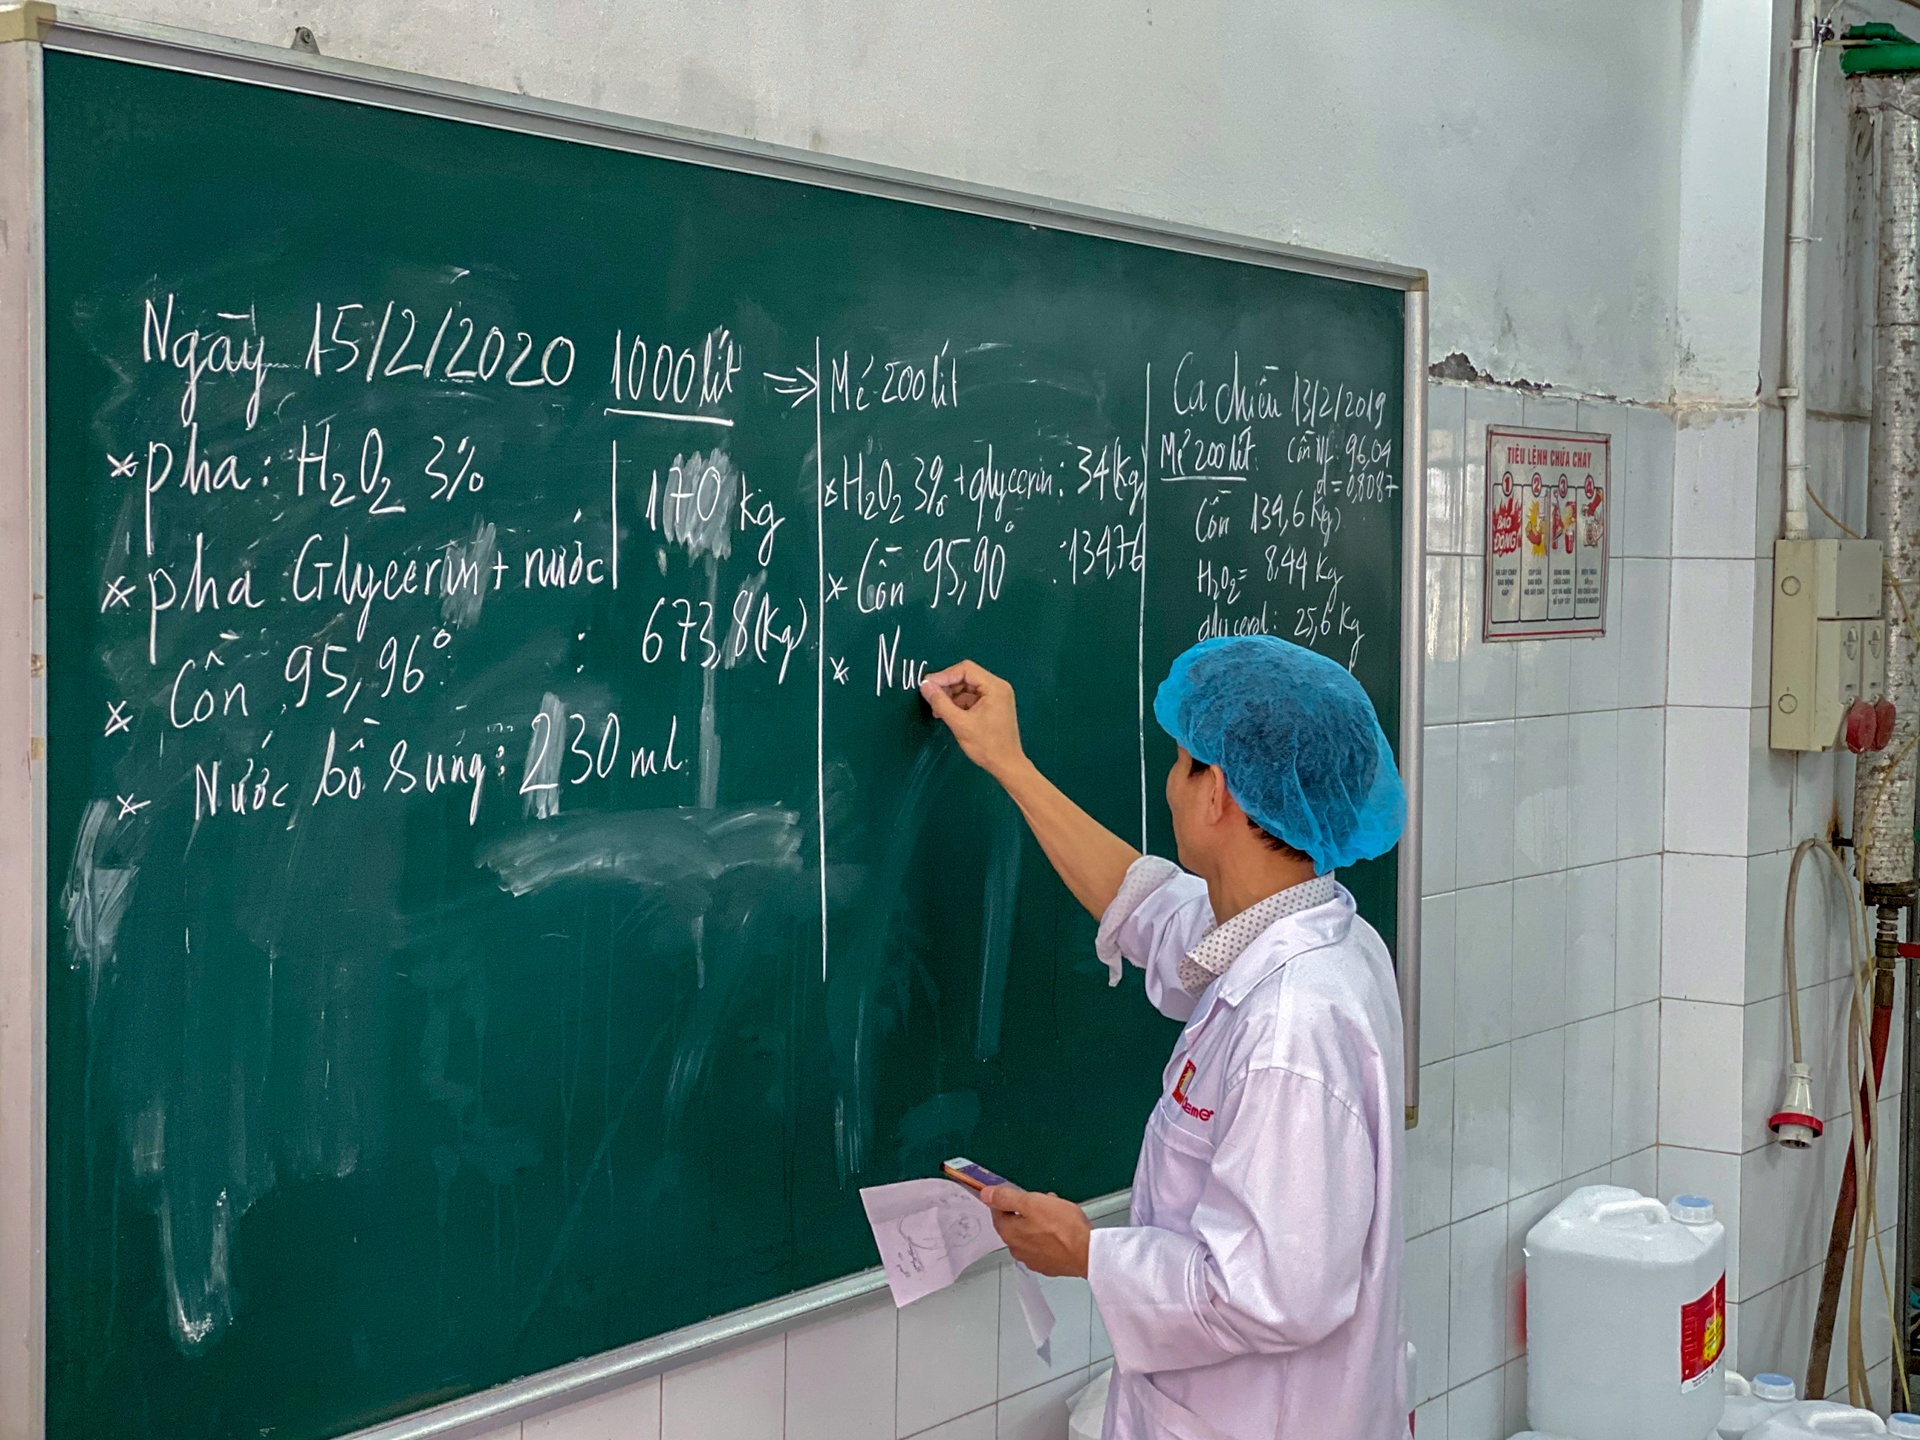 Ngày 15/2/2020 1000 lít =>
* pha: H2O2 3%
* pha Glycerin + nước
170 kg
* Cồn 95,96° : 673,8 (kg)
* Nước bổ sung: 230 ml
Mẻ 200 lít
* H2O2 3% + glycerin: 34 (kg)
* Cồn 95,90° : 134,76
* Nư
Ca chiều 13/2/2019
Mẻ 200 lít: Cồn NL: 96,04
d = 0,8087
Cồn 139,6 Kg)
H2O2 = 8,44 Kg
glycerol: 25,6 Kg
TIÊU LỆNH CHỮA CHÁY
1 2 3 4
BÁO ĐỘNG